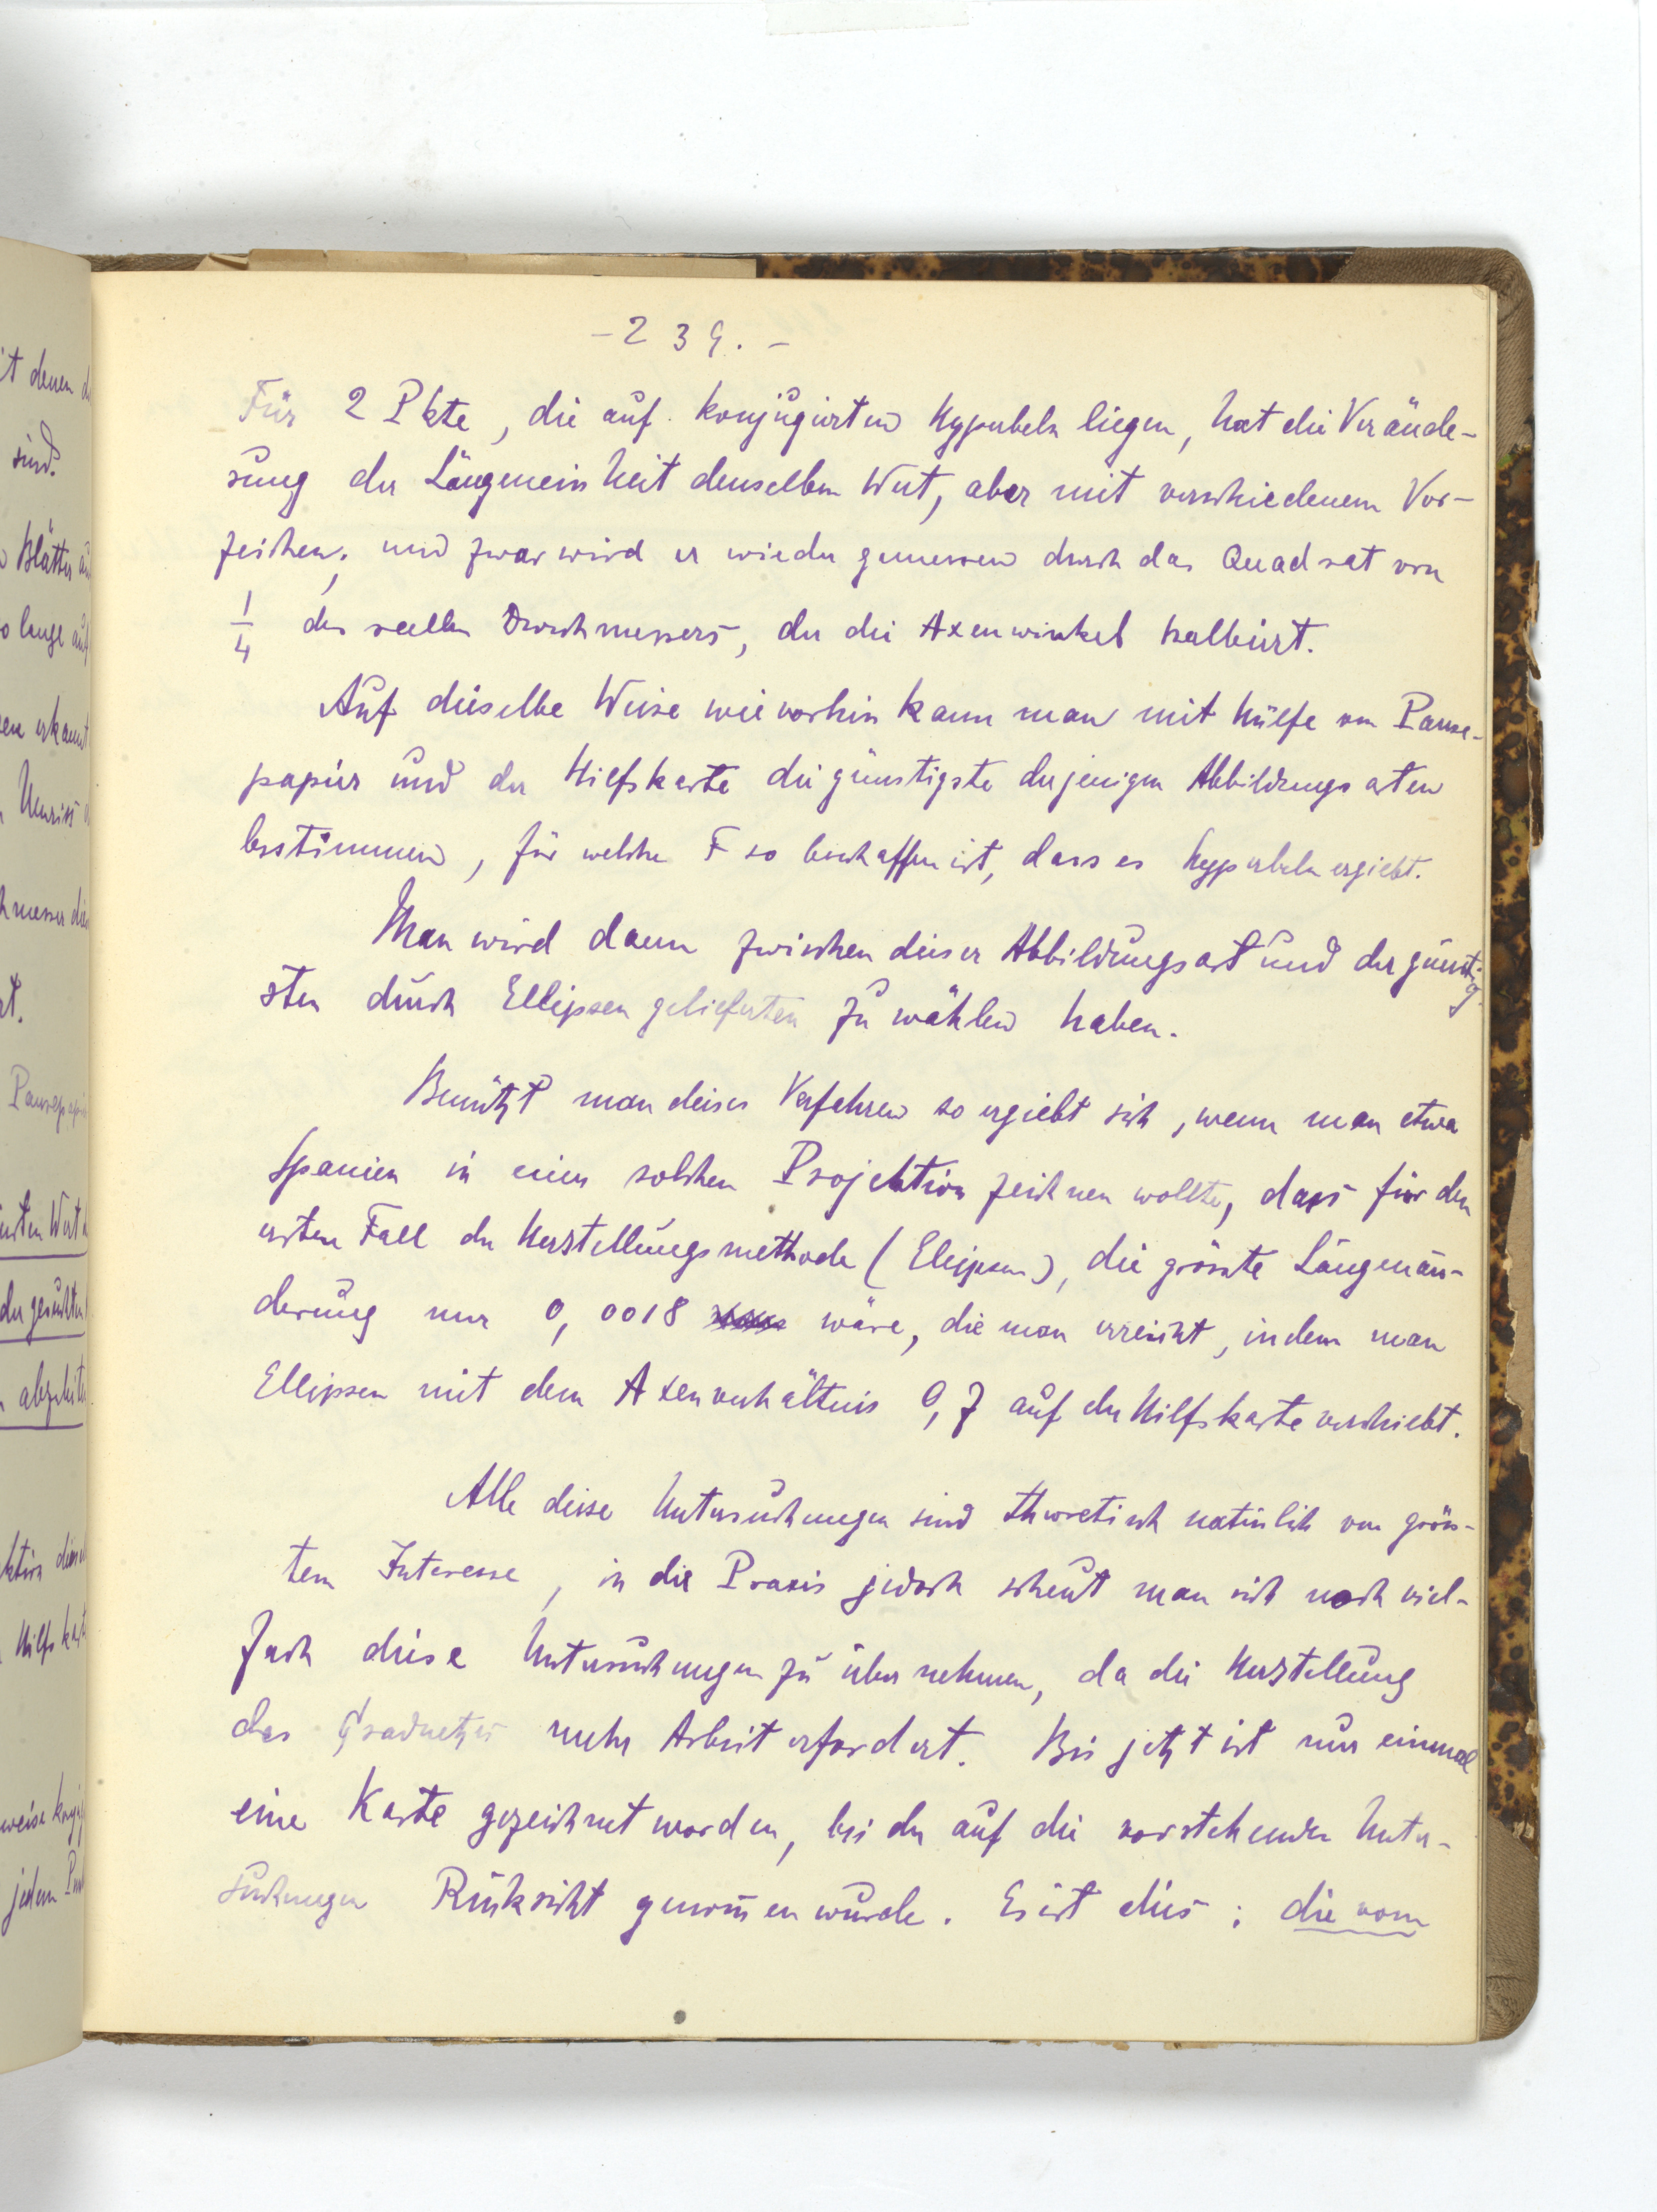 - 239. -
Für 2 Pkte, die auf konjugierten Hyperbeln liegen, hat die Verände-
rung der Längeneinheit denselben Wert, aber mit verschiedenem Vor-
zeichen, und zwar wird er wieder gemessen durch das Quadrat von
1/4 des reellen Durchmessers, der die Axenwinkel halbiert.
Auf dieselbe Weise wie vorhin kann man mit Hülfe von Pause-
papier und der Hilfskarte die günstigste derjenigen Abbildungsarten
bestimmen, für welche F so beschaffen ist, dass es Hyperbeln ergiebt.
Man wird dann zwischen dieser Abbildungsart und der günstig-
sten durch Ellipsen gelieferten zu wählen haben.
Benützt man dieses Verfahren so ergiebt sich, wenn man etwa
Spanien in einer solchen Projektion zeichnen wollte, dass für den
ersten Fall der Herstellungsmethode (Ellipsen), die grösste Längenän-
derung nur 0,0018 wäre, die man erreicht, indem man
Ellipsen mit dem Axenverhältnis 0,7 auf der Hilfskarte verschiebt.
Alle diese Untersuchungen sind theoretisch natürlich von gröss-
tem Interesse, in die Praxis jedoch scheut man sich noch viel-
fach diese Untersuchungen zu übernehmen, da die Herstellung
des Gradnetzes mehr Arbeit erfordert. Bis jetzt ist nur einmal
eine Karte gezeichnet worden, bei der auf die vorstehenden Unter-
suchungen Rücksicht genommen wurde. Es ist dies: die vom
it denen
sind.
Blätter
so lange auf
erkannt
Umriss
Pausepapi
Wert
der gesuchten
Hilfskart
weise
jedem